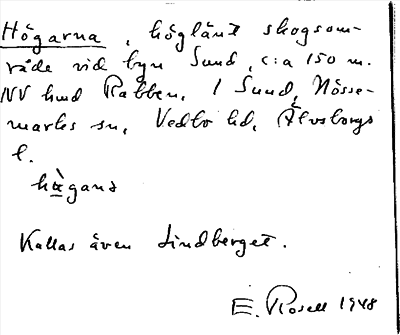 Högarna, höglänt skogsom-
råde vid byn Sund, c:a 150 m.
NV hmd Rabben. / Sund, Nösse-
marks sn, Vedbo hd, Älvsborgs
l.
hὰgana
Kallas även Lindberget.
E. Rosell 1948